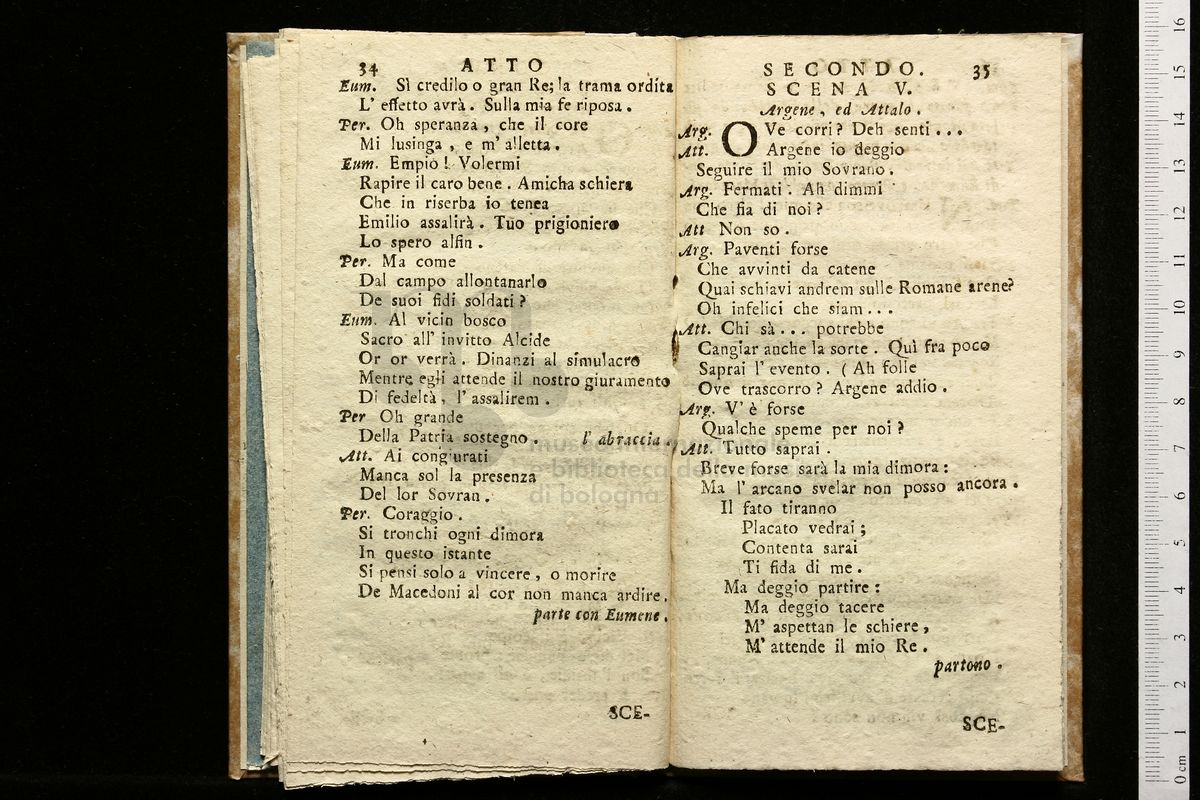 34 ATTO
Eum. Sì credilo o gran Re; la trama ordita
L' effetto avrà. Sulla mia fe riposa.
Per. Oh speranza, che il core
Mi lusinga, e m' alletta.
Eum. Empio! Volermi
Rapire il caro bene. Amicha schiera
Che in riserba io tenea
Emilio assalirà. Tuo prigioniero
Lo spero alfin.
Per. Ma come
Dal campo allontanarlo
De suoi fidi soldati?
Eum. Al vicin bosco
Sacro all' invitto Alcide
Or or verrà. Dinanzi al simulacro
Mentre egli attende il nostro giuramento
Di fedeltà, l' assalirem.
Per Oh grande
Della Patria sostegno. l' abraccia.
Att. Ai congiurati
Manca sol la presenza
Del lor Sovran.
Per. Coraggio.
Si tronchi ogni dimora
In questo istante
Si pensi solo a vincere, o morire
De Macedoni al cor non manca ardire.
parte con Eumene.
SCE-
SECONDO. 35
SCENA V.
Argene, ed Attalo.
Arg. OVe corri? Deh senti...
Att. Argene io deggio
Seguire il mio Sovrano.
Arg. Fermati. Ah dimmi
Che fia di noi?
Att Non so.
Arg. Paventi forse
Che avvinti da catene
Quai schiavi andrem sulle Romane arene?
Oh infelici che siam...
Att. Chi sà... potrebbe
Cangiar anche la sorte. Quì fra poco
Saprai l' evento. (Ah folle
Ove trascorro? Argene addio.
Arg. V' è forse
Qualche speme per noi?
Att. Tutto saprai.
Breve forse sarà la mia dimora:
Ma l' arcano svelar non posso ancora.
Il fato tiranno
Placato vedrai;
Contenta sarai
Ti fida di me.
Ma deggio partire:
Ma deggio tacere
M' aspettan le schiere,
M' attende il mio Re.
partono.
SCE-
museo internazionale
e biblioteca della musica
di bologna
0 cm 1 2 3 4 5 6 7 8 9 10 11 12 13 14 15 16